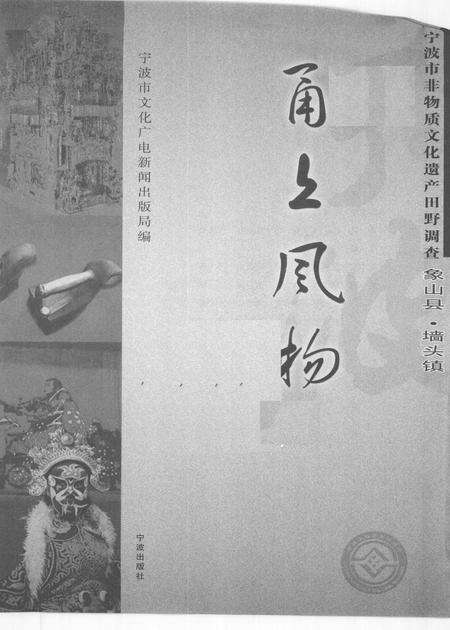 宁波市非物质文化遗产田野调查 象山县·墙头镇
甬上风物
宁波市文化广电新闻出版局编
宁波出版社